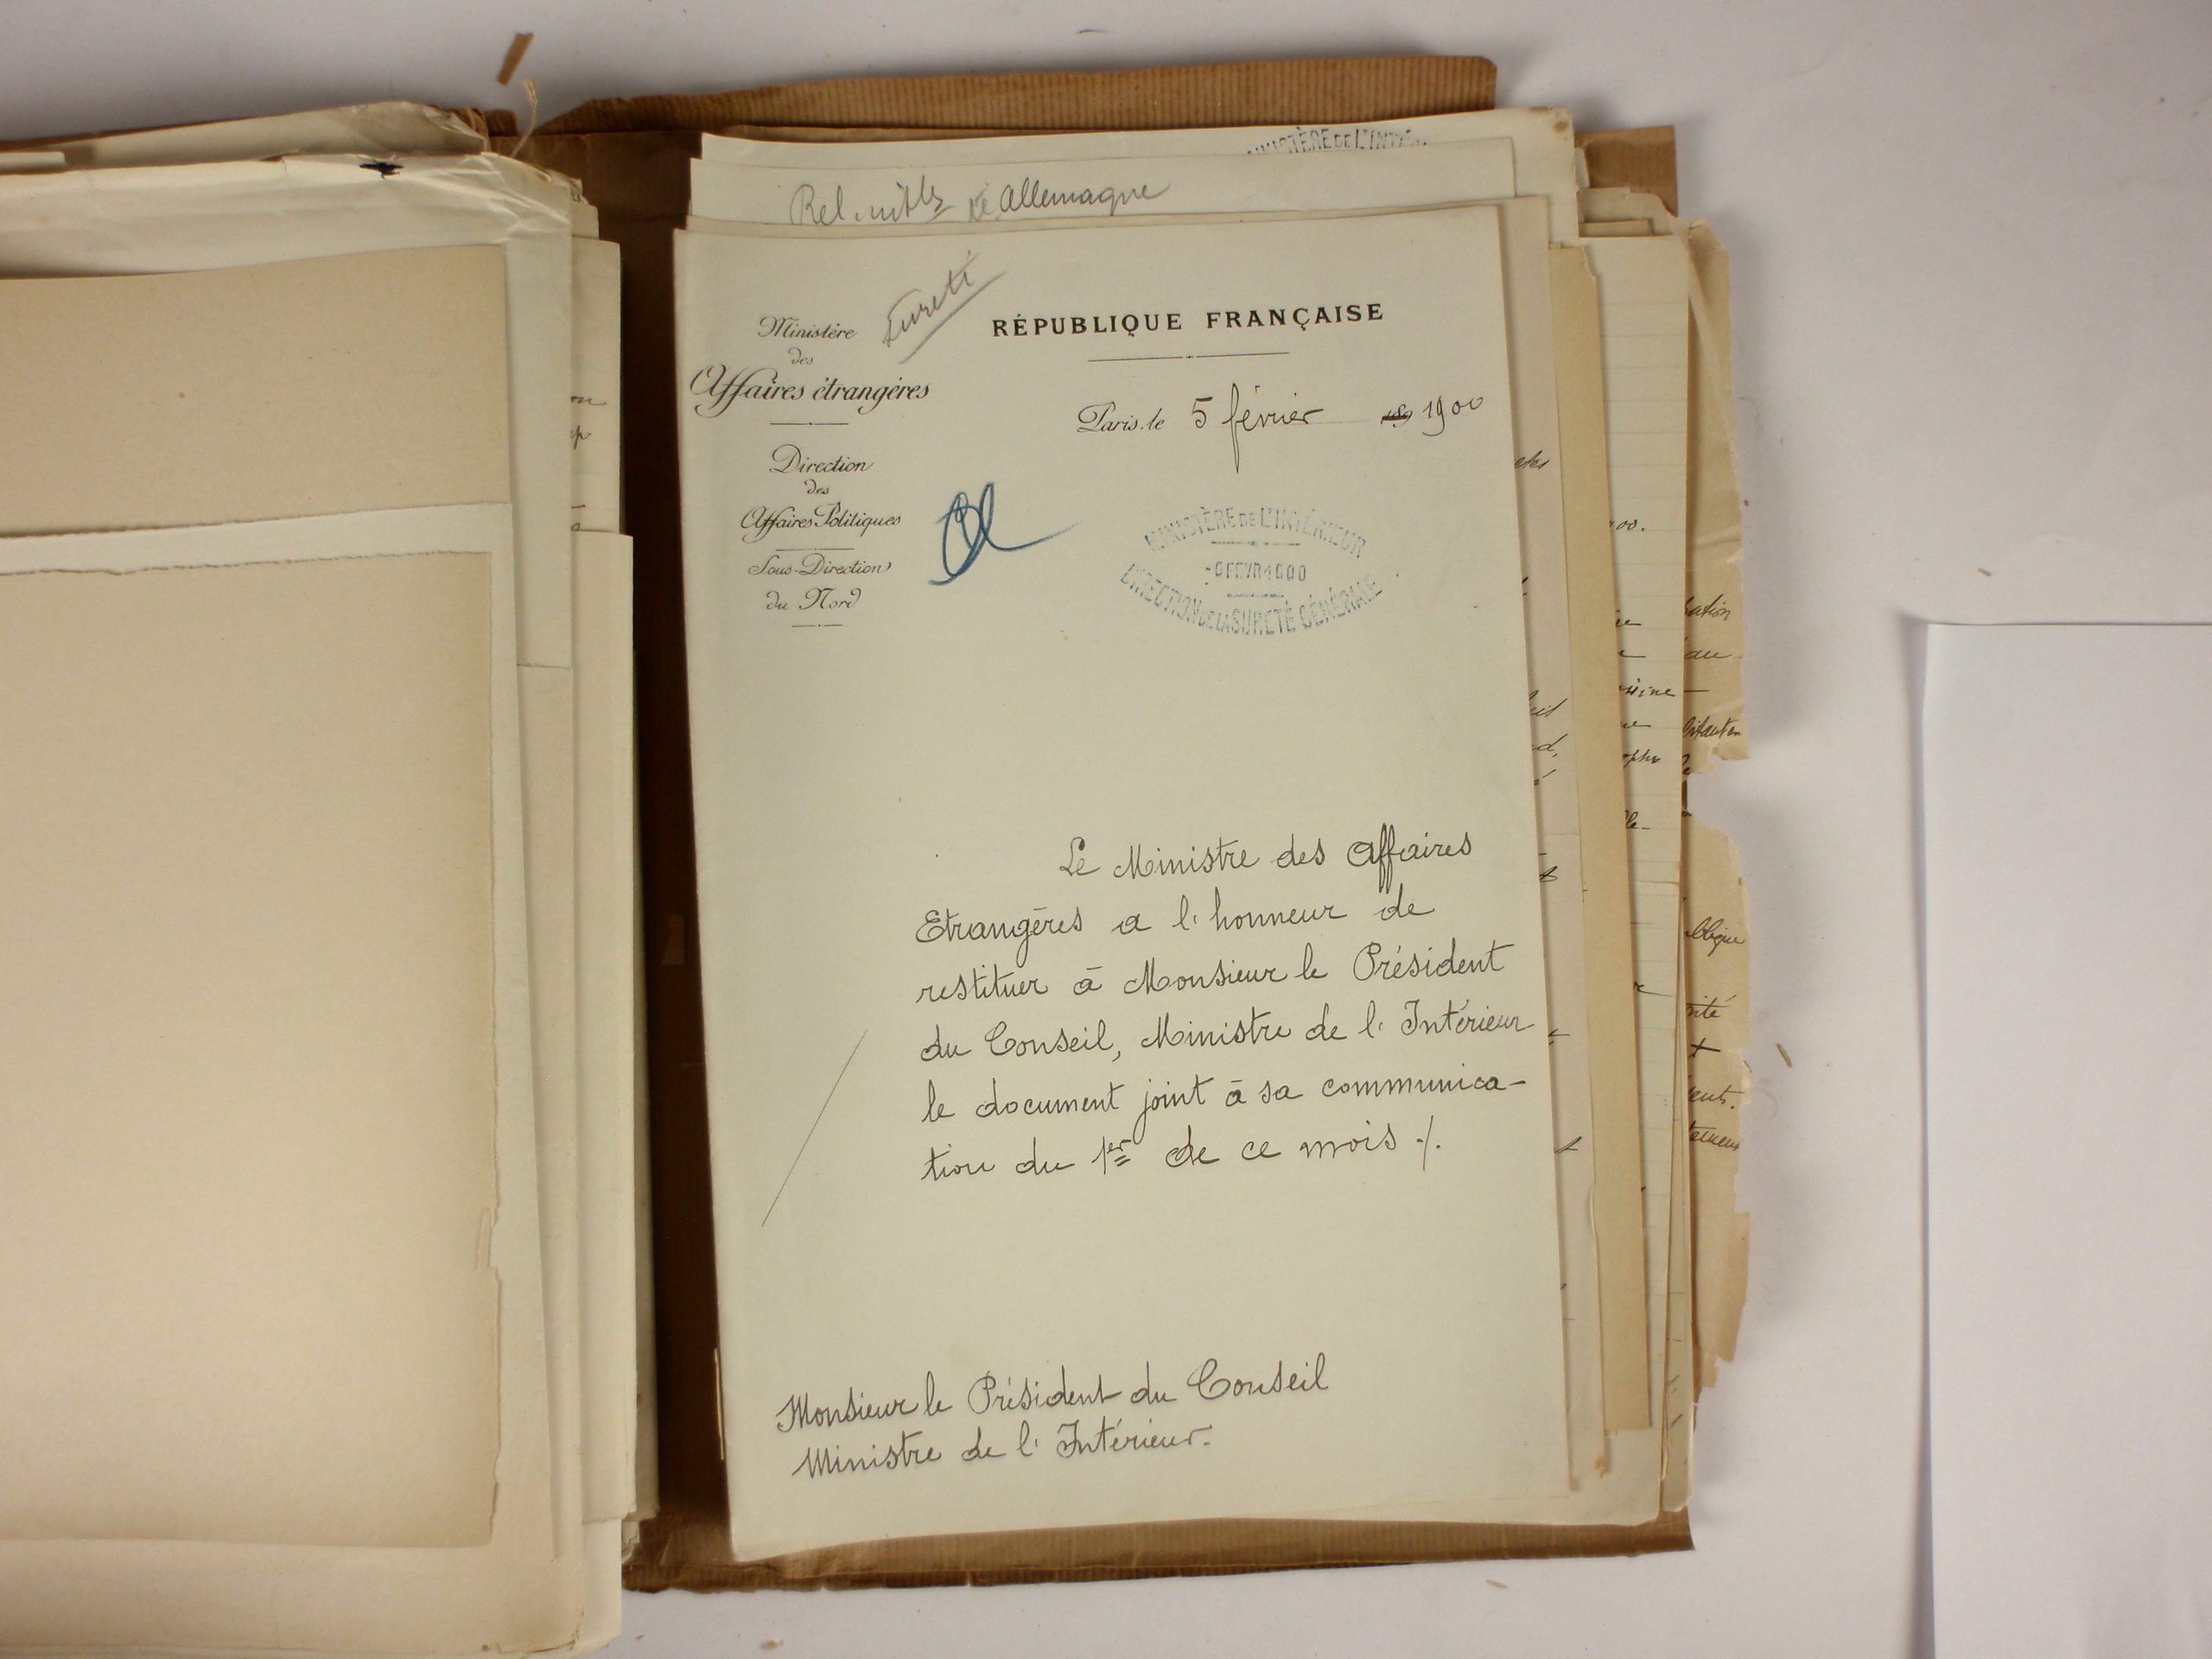 MINISTÈRE DE L'INTÉR
Allemagne
Sureté
Ministère
des
Affaires étrangères
RÉPUBLIQUE FRANÇAISE
Paris, le 5 février 189 1900
Direction
des
Affaires Politiques
Sous-Direction
du Nord
MINISTÈRE DE L'INTÉRIEUR
FEVR 1900
DIRECTION DE LA SURETÉ GÉNÉRALE
Le Ministre des Affaires
Etrangères a l'honneur de
restituer à Monsieur le Président
du Conseil, Ministre de l'Intérieur
le document joint à sa communica-
tion du 1er de ce mois ./.
Monsieur le Président du Conseil
Ministre de l'Intérieur.